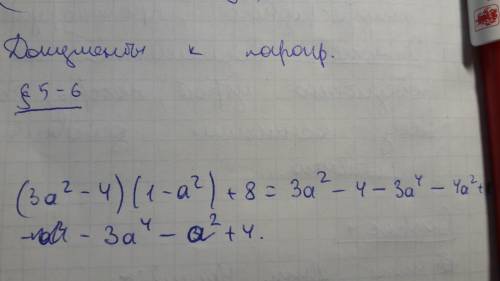 Документы к парагр.
§ 5-6
(3a² - 4)(1 - a²) + 8 = 3a² - 4 - 3a⁴ - 4a² +
- 3a⁴ - a² + 4.